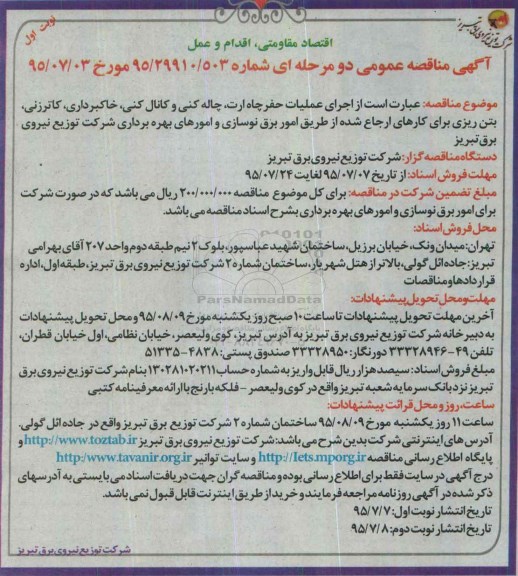 نوبت اول
اقتصاد مقاومتی، اقدام و عمل
آگهی مناقصه عمومی دو مرحله ای شماره ۹۵/۲۹۹۱۰/۵۰۳ مورخ ۹۵/۰۷/۰۳
موضوع مناقصه: عبارت است از اجرای عملیات حفر چاه ارت، چاله کنی و کانال کنی، خاکبرداری، کاترزنی،
بتن ریزی برای کارهای ارجاع شده از طریق امور برق نوسازی و امورهای بهره برداری شرکت توزیع نیروی
برق تبریز
دستگاه مناقصه گزار: شرکت توزیع نیروی برق تبریز
مهلت فروش اسناد: از تاریخ ۹۵/۰۷/۰۷ لغایت ۹۵/۰۷/۲۴
مبلغ تضمین شرکت در مناقصه: برای کل موضوع مناقصه ۲۰۰/۰۰۰/۰۰۰ ریال می باشد که در صورت شرکت
برای امور برق نوسازی و امورهای بهره برداری بشرح اسناد مناقصه می باشد.
محل فروش اسناد:
تهران: میدان ونک، خیابان برزیل، ساختمان شهید عباسپور، بلوک ۲ نیم طبقه دوم واحد ۲۰۷ آقای بهرامی
تبریز: جاده ائل گولی، بالاتر از هتل شهریار، ساختمان شماره ۲ شرکت توزیع نیروی برق تبریز، طبقه اول، اداره
قراردادها و مناقصات
ParsNamadData
مهلت و محل تحویل پیشنهادات:
آخرین مهلت تحویل پیشنهادات تا ساعت ۱۰ صبح روز یکشنبه مورخ ۹۵/۰۸/۰۹ و محل تحویل پیشنهادات
به دبیرخانه شرکت توزیع نیروی برق تبریز به آدرس تبریز، کوی ولیعصر، خیابان نظامی، اول خیابان قطران،
تلفن ۴۹-۳۳۳۲۸۹۴۶ دورنگار: ۳۳۳۲۸۹۵۰ صندوق پستی: ۴۸۳۸-۵۱۳۳۵
مبلغ فروش اسناد: سیصد هزار ریال قابل واریز به شماره حساب ۱۳۰۲۸۱۰۲۰۲۱۱ بنام شرکت توزیع نیروی برق
تبریز نزد بانک سرمایه شعبه تبریز واقع در کوی ولیعصر - فلکه بارنج با ارائه معرفینامه کتبی
ساعت، روز و محل قرائت پیشنهادات:
ساعت ۱۱ روز یکشنبه مورخ ۹۵/۰۸/۰۹ ساختمان شماره ۲ شرکت توزیع نیروی برق تبریز واقع در جاده ائل گولی.
آدرس های اینترنتی شرکت بدین شرح می باشد: شرکت توزیع نیروی برق تبریز http://www.toztab.ir و
پایگاه اطلاع رسانی مناقصه http://Iets.mporg.ir و سایت توانیر http://www.tavanir.org.ir
درج آگهی در سایت فقط برای اطلاع رسانی بوده و مناقصه گران جهت دریافت اسناد می بایستی به آدرسهای
ذکر شده در آگهی روزنامه مراجعه فرمایند و خرید از طریق اینترنت قابل قبول نمی باشد.
تاریخ انتشار نوبت اول: ۹۵/۷/۷
تاریخ انتشار نوبت دوم: ۹۵/۷/۸
شرکت توزیع نیروی برق تبریز